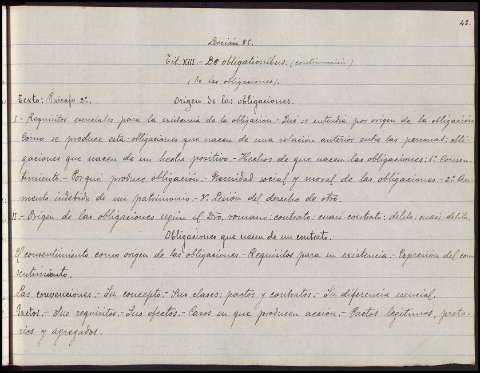 42.
Lección 85.
Tit. XIII.- De obligationibus. (continuación)
(De las obligaciones).
Texto: Párrafo 2º. Origen de las obligaciones.
I.- Requisitos esenciales para la existencia de la obligación.- Qué se entiende por origen de la obligación
Como se produce esta.- obligaciones que nacen de una relación anterior entre las personas: obli-
gaciones que nacen de un hecho positivo.- Hechos de que nacen las obligaciones: 1º Consen-
timiento.- Porqué produce obligación.- Necesidad social y moral de las obligaciones.- 2º Au-
mento indebido de un patrimonio.- 3º Lesión del derecho de otro.
II.- Origen de las obligaciones según el Dro. romano: contrato: cuasi contrato: delito: cuasi delito.
Obligaciones que nacen de un contrato.
El consentimiento como origen de las obligaciones.- Requisitos para su existencia.- Expresión del con
sentimiento.
Las convenciones.- Su concepto.- Sus clases: pactos y contratos.- Su diferencia esencial.
Pactos.- Sus requisitos.- Sus efectos.- Casos en que producen acción.- Pactos legítimos, preto-
rios y agregados.